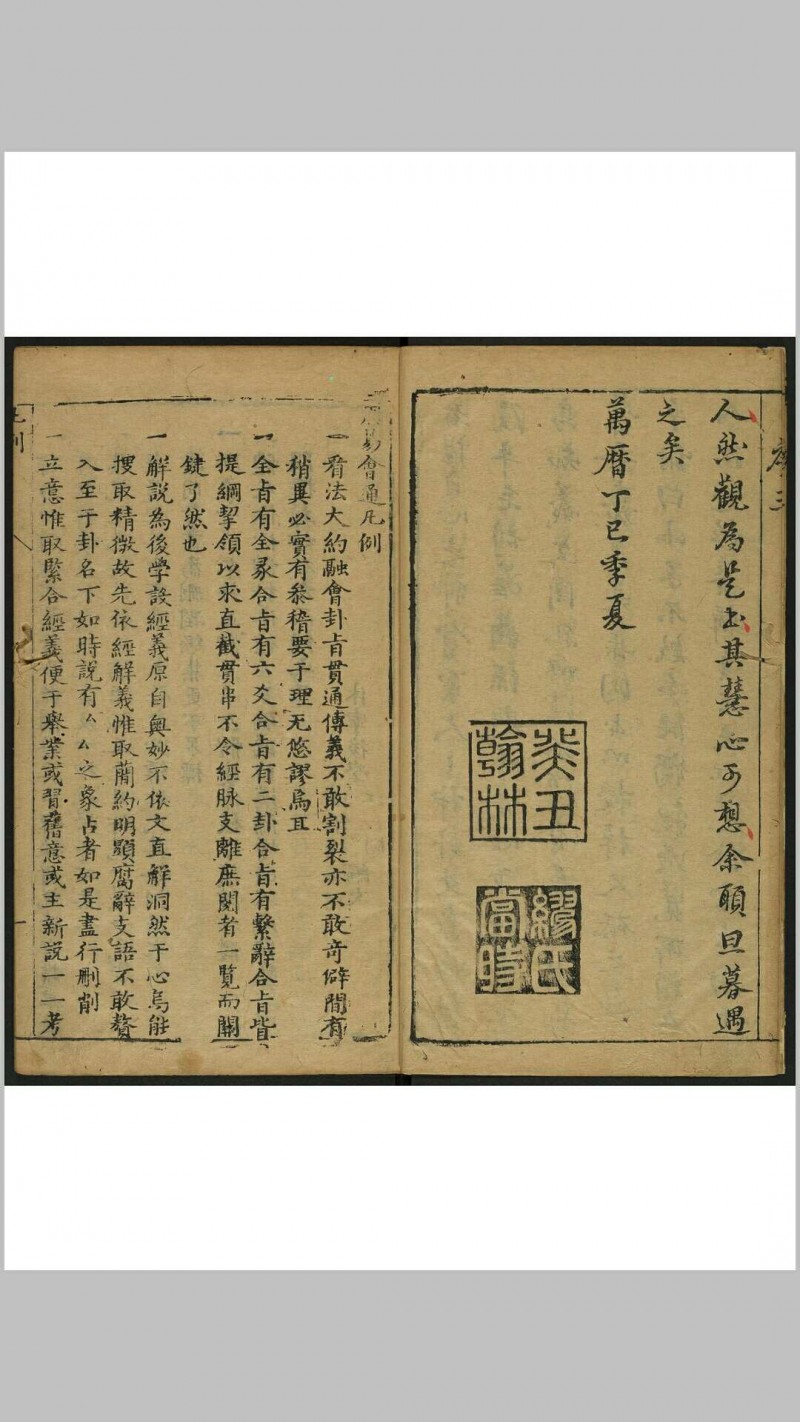 序三
人然觀為是书其慧心可想余頤旦暮遇
之矣
萬曆丁巳季夏
癸丑翰林
繆氏當時
易會通凡例
一看法大約融會卦㫖貫通傳義不敢割裂亦不敢奇僻間有
稍異必實有叅稽要于理无悠謬焉耳
一全㫖有全彖合㫖有六爻合㫖有二卦合㫖有繫辭合㫖皆
提綱挈領以求直截貫串不令經脉支離庶閱者一覽而關
鍵了然也
一解說為後學設經義原自奥妙不依文直解洞然于心烏能
搜取精微故先依經解義惟取蕳約明顯腐辭支語不敢贅
入至于卦名下如時說有厶厶之象占者如是盡行刪削
一立意惟取緊合經義便于舉業或習舊意或主新說一一考